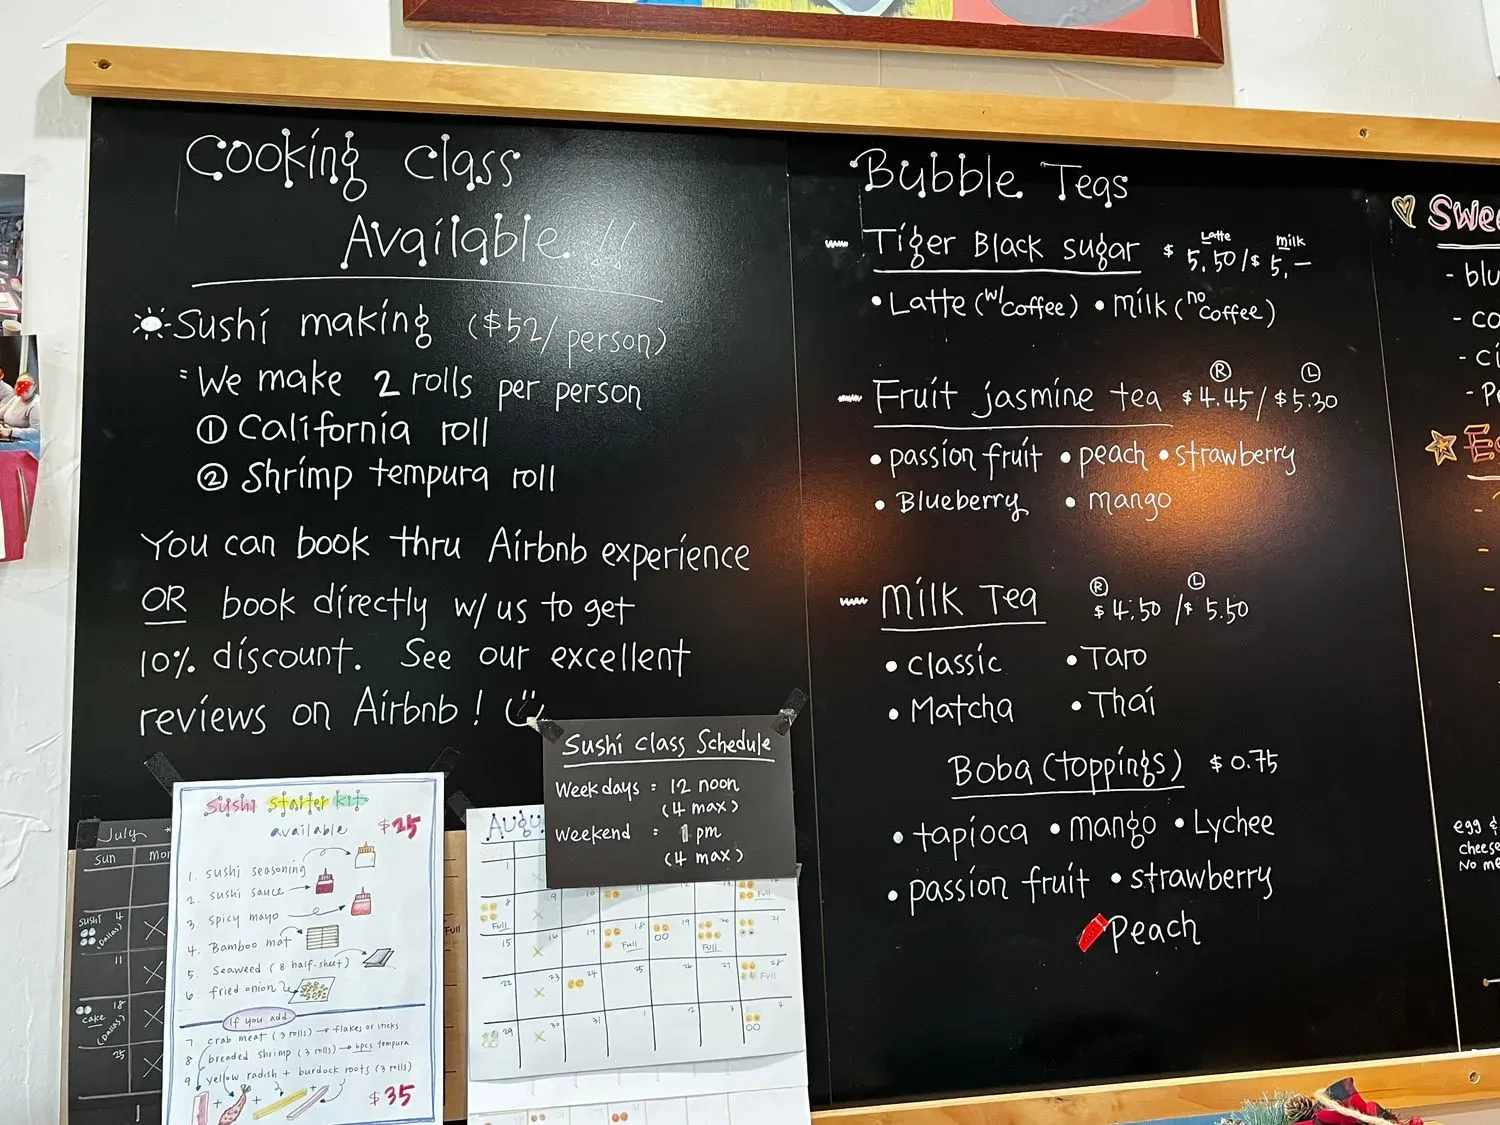 Cooking Class
Available !!
Sushi making ($52/person)
We make 2 rolls per person
① California roll
② Shrimp tempura roll
You can book thru Airbnb experience
OR book directly w/ us to get
10% discount. See our excellent
reviews on Airbnb!
Sushi class Schedule
Weekdays : 12 noon
(4 max)
Weekend : 1 pm
(4 max)
Sushi starter kit
available $25
1. sushi seasoning
2. sushi sauce
3. spicy mayo
4. Bamboo mat
5. Seaweed (8 half-sheet)
6. fried onion
If you add
7 crab meat (3 rolls) → flakes or sticks
8 breaded shrimp (3 rolls) → 6pcs tempura
9 yellow radish + burdock roots (3 rolls)
$35
July
Sun Mon
Sushi 4
(Dallas)
11
18
cake
(Dallas)
25
Full
Augu
1
8 9 10 11 12 13 14
Full Full
15 16 17 18 19 20 21
Full Full
22 23 24 25 26 27 28
Full
29 30 31 1 2 3 4
Bubble Teas
Tiger Black sugar Latte $5.50/ milk $5.-
• Latte (w/ coffee) • milk (no coffee)
Fruit jasmine tea Ⓡ $4.45/ Ⓛ $5.30
• passion fruit • peach • strawberry
• Blueberry • mango
Milk Tea Ⓡ $4.50 / Ⓛ $5.50
• classic • Taro
• Matcha • Thai
Boba (toppings) $0.75
• tapioca • mango • Lychee
• passion fruit • strawberry
Peach
Swee
- blu
- co
- ci
- Pe
egg &
cheese
No me